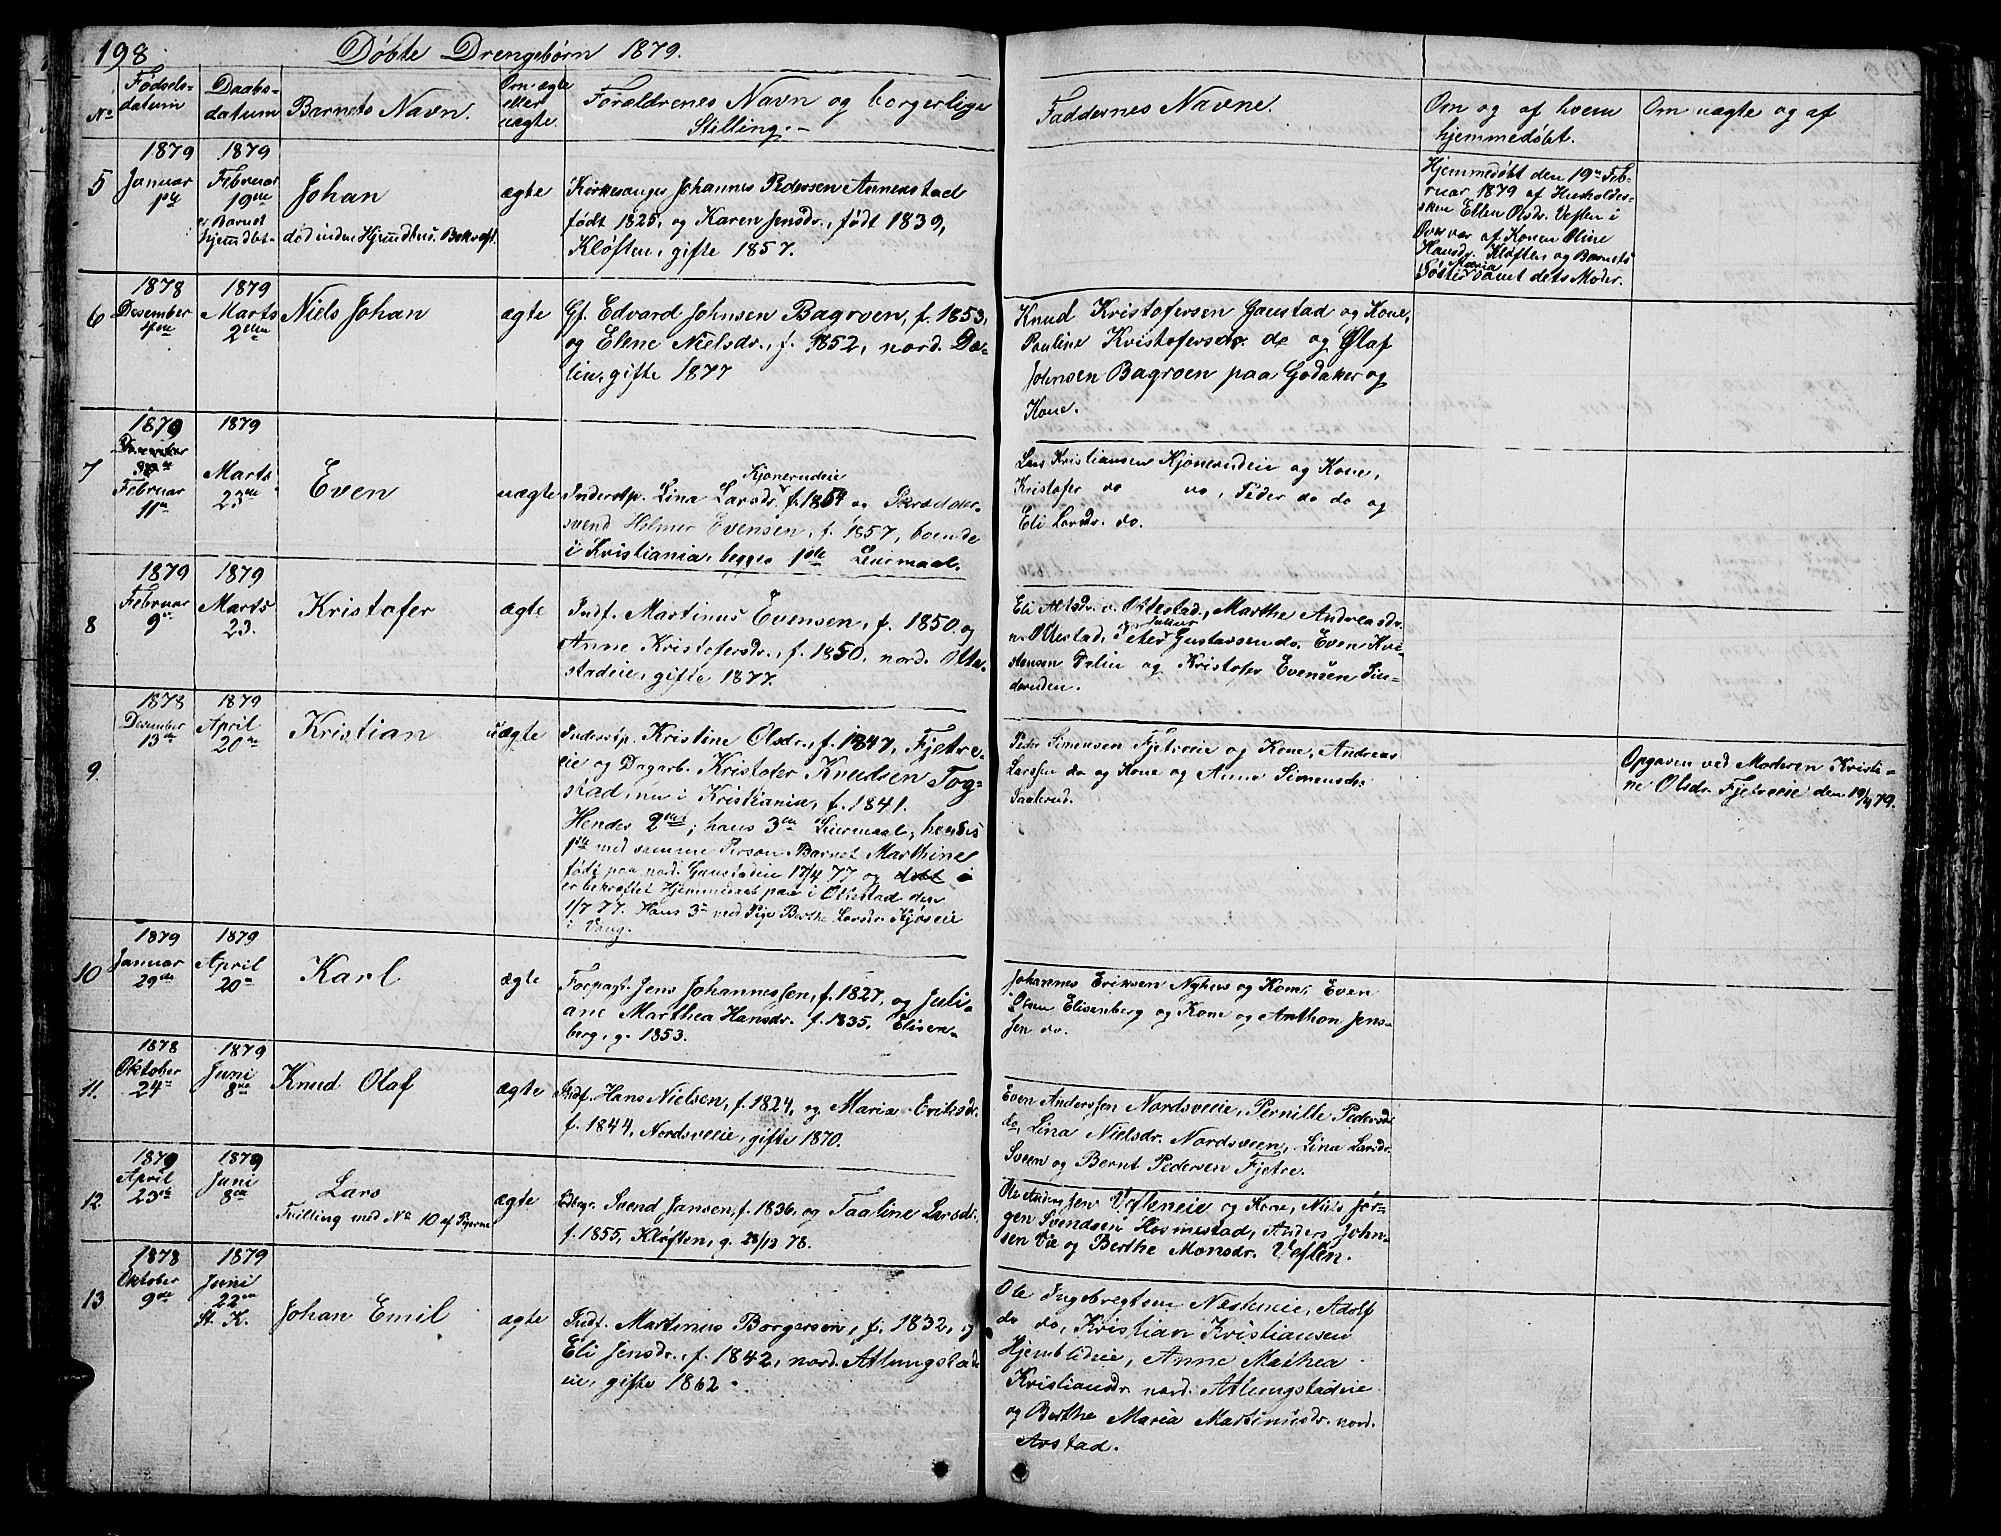 198
Døbte Drengebørn 1879.
No
Fødsels-
datum
Daabs-
datum
Barnets Navn.
Om ægte
eller
uægte.
Forældrenes Navn og borgerlige
Stilling.
Faddernes Navne.
Om og af hvem
hjemmedøbt.
Om uægte og af
5
1879
Januar
1879
Februar
19de
Barnet
Johan
død inden
ægte
Kirkesanger Johannes Pedersen Annenstad
født 1825, og Karen Jensdr., født 1839,
Kløften, gifte 1857.
Hjemmedøbt den 19de Feb-
ruar 1879 af Husholders-
sken Ellen Olsdr. Veflen i
Overvær af Konen Oline
Hansdr. Kløften og Barnets
Søster Maria samt dets Moder.
6
1878
Desember
1879
Marts
2den
Niels Johan
ægte
Gf. Edvard Johnsen Bagroen, f. 1853,
og Elene Nielsdr., f. 1852, nord. Da-
lien, gifte 1877
Knud Kristofersen Gaustad og Kone,
Pauline Kristofersdr. do og Olaf
Johnsen Bagroen paa Godaker og
Kone.
7
1879
Februar
11te
1879
Marts
23de
Even
uægte
Kjonerudeie
Inderstp. Lina Larsdr. f. 1854 og Skrædder-
svend Helmer Evensen, f. 1857, boende
i Kristiania, begges 1ste Leiermaal.
Lars Kristiansen Kjonerudeie og Kone,
Kristofer do do, Peder do do og
Eli Larsdr. do.
8
1879
Februar
9de
1879
Marts
23.
Kristofer
ægte
Indf. Martinus Evensen, f. 1850 og
Anne Kristofersdr., f. 1850, nord. Otte-
stadeie, gifte 1877.
Eli Olsdr. n. Ottestad, Marthe Andreasdr.
n. Ottestad, Peter Gustavsen do. Even Kri-
stensen Dalie og Kristofer Evensen Lin-
deruden.
9.
1878
Desember
13de
1879
April
20de
Kristian
uægte
Inderstp. Kristine Olsdr., f. 1847, Fjetre-
eie og Dagarb. Kristofer Knudsen Tog-
stad, nu i Kristiania, f. 1841.
Hendes 2det; hans 3die Leiermaal; hendes
1ste med samme Person Barnet Marthine
født paa nord. Gaustadeie 17/4 77 og
er bekræftet Hjemmedøbt paa i Ottestad den
1/7 77. Hans 3die med Pige Berthe Larsdr. Kjøseie
i Vang.
Peder Simensen Fjetreeie og Kone, Andreas
Larssen do og Kone og Anne Simensdr.
Saalerud.
Opgaven ved Moderen Kristi-
ne Olsdr. Fjetreeie den 19/4 79.
10
1879
Januar
29de
1879
April
20de
Karl
ægte
Forpagt. Jens Johannessen, f. 1827, og Juli-
ane Marthea Hansdr. f. 1835, Elisen-
berg, g. 1853.
Johannes Eriksen Nyhus og Kone, Even
Olsen Elisenberg og Kone og Anthon Jens-
sen do.
11.
1878
Oktober
24de
1879
Juni
8de
Knud Olaf
ægte
Indf. Hans Nielsen, f. 1824, og Maria Eriksdr.
f. 1844, Nordsveeie, gifte 1870.
Even Anderssen Nordsveeie, Pernille Pedersdr.
do, Lina Nielsdr. Nordsveen, Lina Larsdr.
Sveen og Bernt Pedersen Fjetre.
12.
1879
April
23de
1879
Juni
8de
Lars
Tvilling med No 10 af Pigerne
ægte
Svend Jansen, f. 1836, og Taaline Larsdr.
f. 1855, Kløften, g. 28/12 78.
Ole Anderssen Vefleneie og Kone, Niels Jør-
gen Svendsen Hosmestad, Anders John-
sen Vie og Berthe Monsdr. Veflen.
13
1878
Oktober
9de
1879
Juni
22de
St. K.
Johan Emil
ægte
Indf. Martinus Borgersen, f. 1832, og
Eli Jensdr., f. 1842, nord. Atlungstad-
eie, gifte 1862.
Ole Ingebregtsen Næsteneie, Adolf
do do, Kristian Kristiansen
Hjemblideie, Anne Mathea
Kristiansdr. nord. Atlungstadeie
og Berthe Maria Martinusdr. nord.
Arstad.